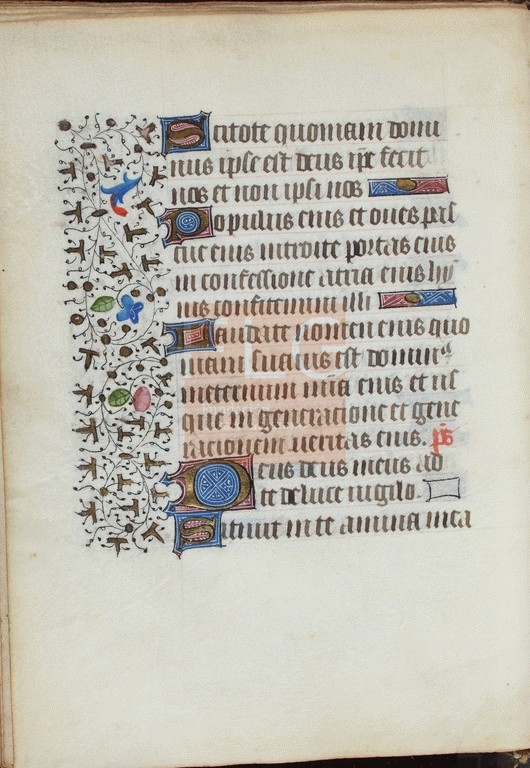 Scitote quoniam domi
nus ipse est deus ipe fecit
nos et non ipsi nos
Populus eius et oues pas
cue eius introite portas eius
in confessione atria eius hym
nis confitemini illi
Laudate nomen eius quo
niam suauis est dominus
in eternum mia eius et us
que in generacione et gene
racionem ueritas eius. ps
Deus deus meus ad
te de luce uigilo.
Sitiuit in te anima mea